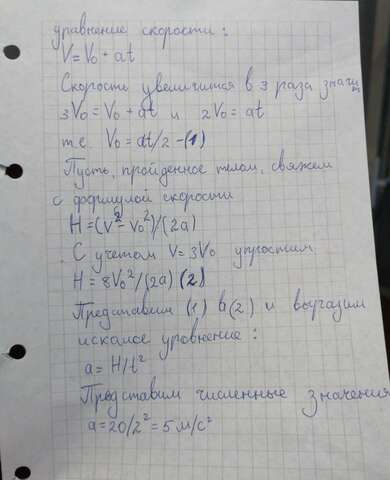 уравнение скорости:
V = V₀ + at
Скорость увеличится в 3 раза значит
3V₀ = V₀ + at и 2V₀ = at
т.е. V₀ = at/2 - (1)
Пусть, пройденное телом, свяжем
с формулой скорости
H = (V² - V₀²)/(2a)
С учетом V = 3V₀ упростим
H = 8V₀²/(2a) (2)
Представим (1) в (2) и выразим
искомое уравнение:
a = H/t²
Представим численные значения
a = 20/2² = 5 м/с²